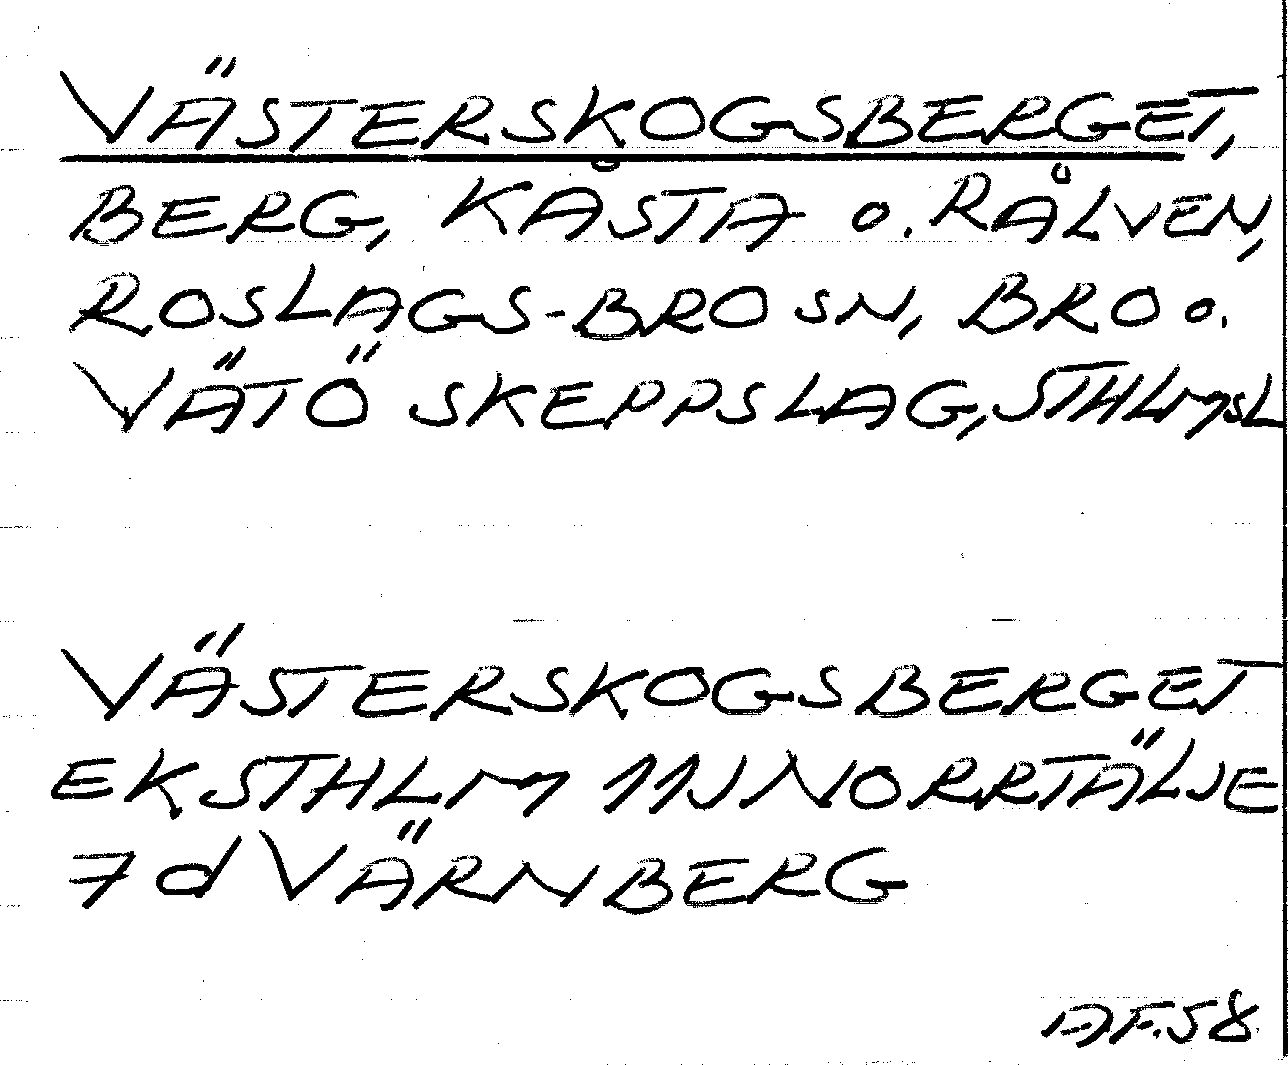 VÄSTERSKOGSBERGET,
BERG, KÅSTA o. RÅLVEN,
ROSLAGS-BRO SN, BRO o.
VÄTÖ SKEPPSLAG, STHLMSL
VÄSTERSKOGSBERGET
EK STHLM 11 NV NORRTÄLJE
7d VÄRNBERG
AF.58